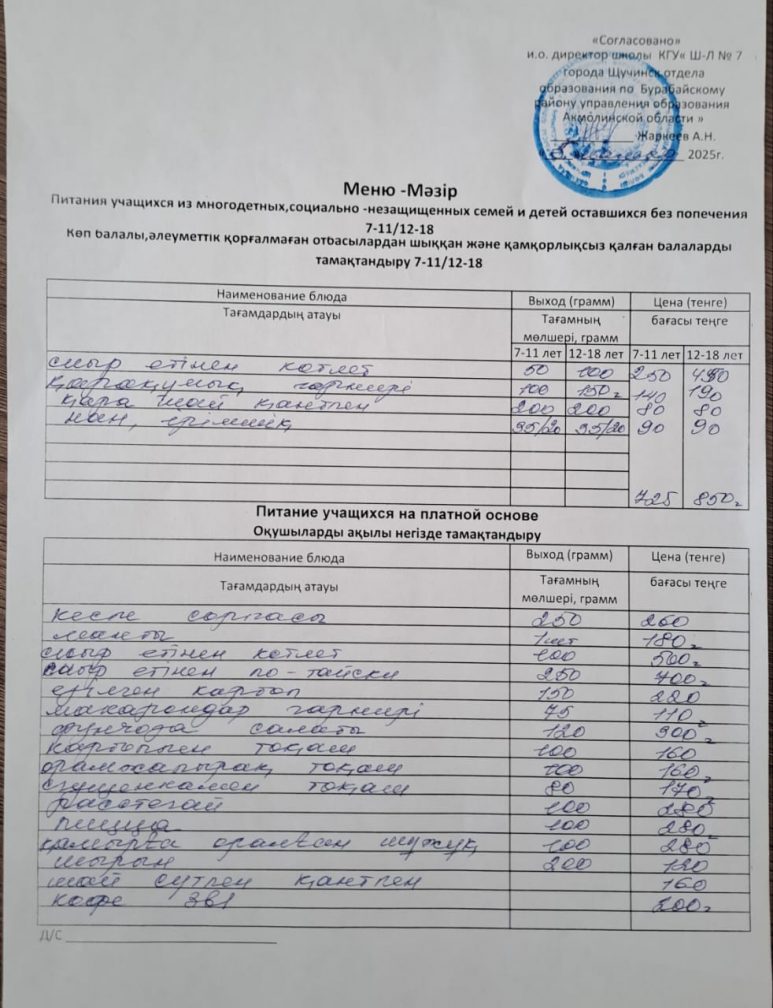 «Согласовано»
и.о. директор школы КГУ« Ш-Л № 7
города Щучинск отдела
образования по Бурабайскому
району управления образования
Акмолинской области »
Жаркеев А.Н.
2025г.
Меню -Мәзір
Питания учащихся из многодетных,социально -незащищенных семей и детей оставшихся без попечения
7-11/12-18
Көп балалы,әлеуметтік қорғалмаған отбасылардан шыққан және қамқорлықсыз қалған балаларды
тамақтандыру 7-11/12-18
Наименование блюда Выход (грамм) Цена (тенге)
Тағамдардың атауы Тағамның мөлшері, грамм бағасы теңге
7-11 лет 12-18 лет 7-11 лет 12-18 лет
сиыр етінен котлет 50 100 250
қарақұмық гарнирі 100 150г 140 190
қара шай қантпен 200 200 80 80
нан, ірімшік 35/20 35/20 90 90
725 850г
Питание учащихся на платной основе
Оқушыларды ақылы негізде тамақтандыру
Наименование блюда Выход (грамм) Цена (тенге)
Тағамдардың атауы Тағамның мөлшері, грамм бағасы теңге
кеспе сорпасы 250 260
манты 1шт 180г
сиыр етінен котлет 100 500г
сиыр етінен по-тайски 250 700г
езілген картоп 150 220
макарондар гарнирі 75 110г
фунчоза салаты 120 900г
картоппен тоқаш 100 160
орамжапырақ тоқаш 100 160г
сгущенкамен тоқаш 80 170г
расстегай 100 280
пицца 100 280г
қамырға оралған шұжұқ 100 280
шырын 200 120
шай сүтпен қантпен 160
кофе 3в1 200г
Д/С